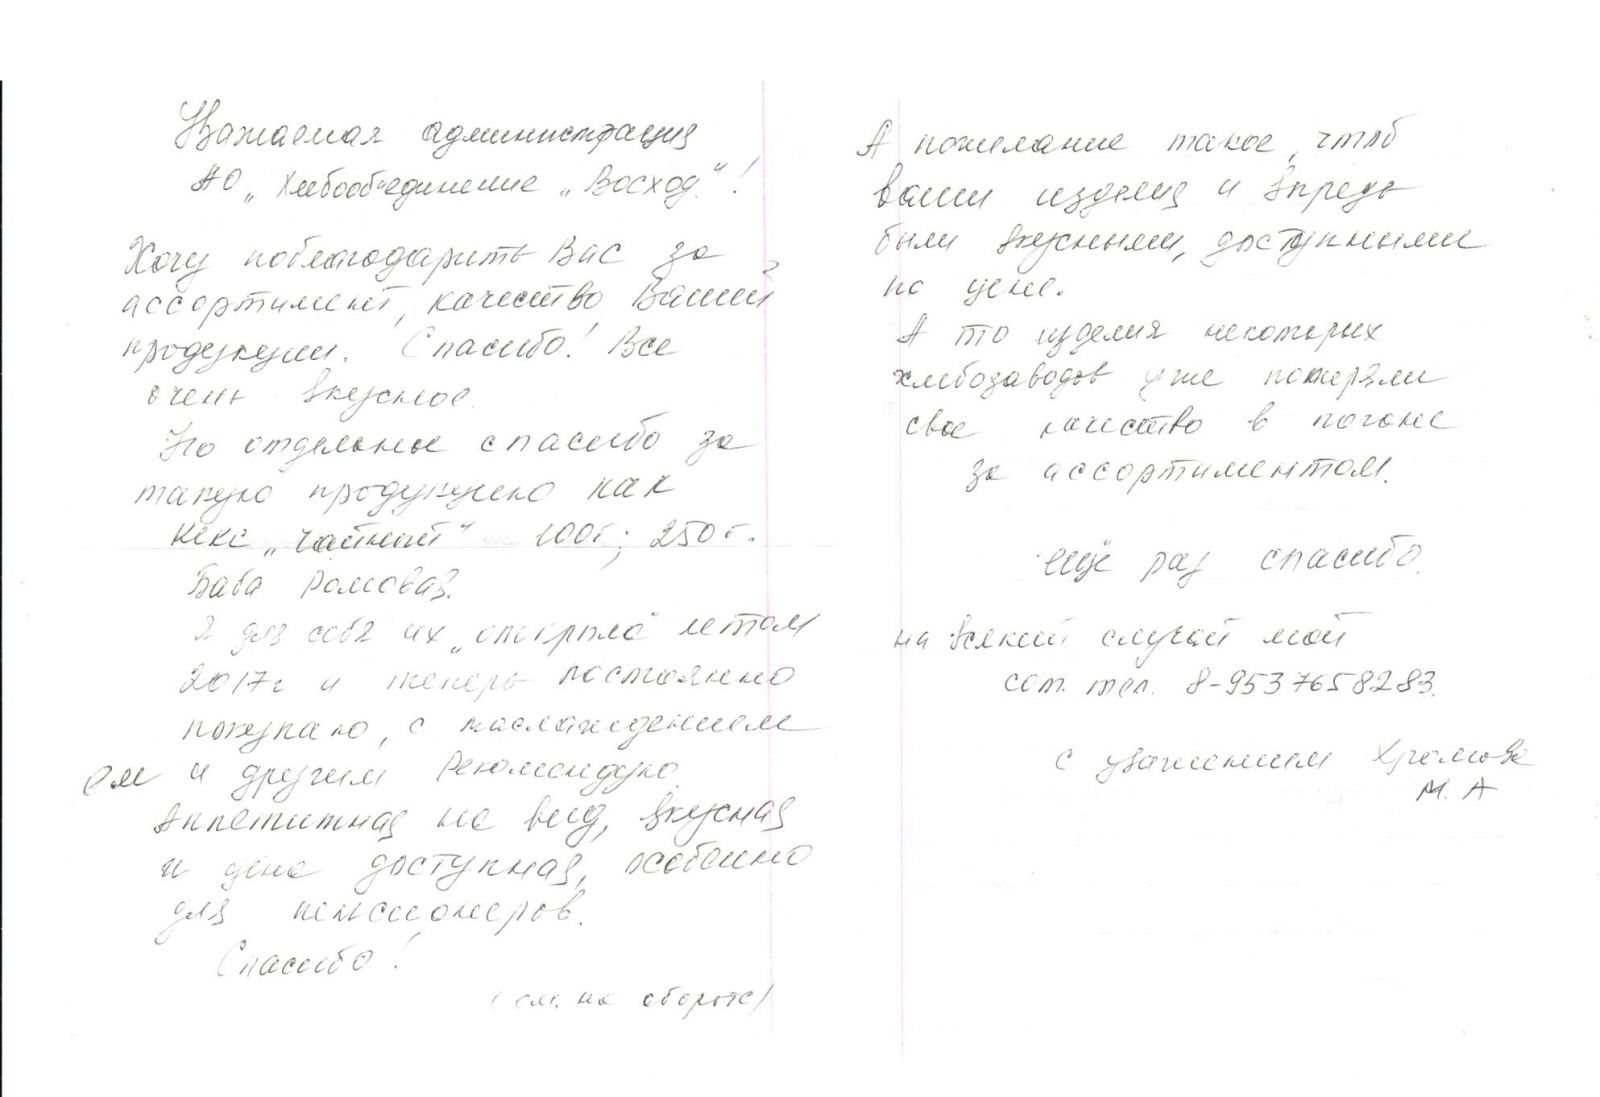 Уважаемая администрация
АО „Хлебообъединение „Восход"!
Хочу поблагодарить Вас за
ассортимент, качество Вашей
продукции. Спасибо! Все
очень вкусное.
Но отдельное спасибо за
такую продукцию как
кекс „Чайный" 100г; 250г.
Баба ромовая.
Я для себя их „открыла" летом
2017г и теперь постоянно
покупаю, с наслаждением
ем и другим рекомендую.
Аппетитная на вид, вкусная
и цена доступная, особенно
для пенсионеров.
Спасибо!
(см. на обороте)
А пожелание такое, чтоб
ваши изделия и впредь
были вкусными, доступными
по цене.
А то изделия некоторых
хлебозаводов уже потеряли
свое качество в погоне
за ассортиментом.
ещё раз спасибо.
на всякий случай мой
сот. тел. 8-9537658283.
с уважением Хромова
М. А